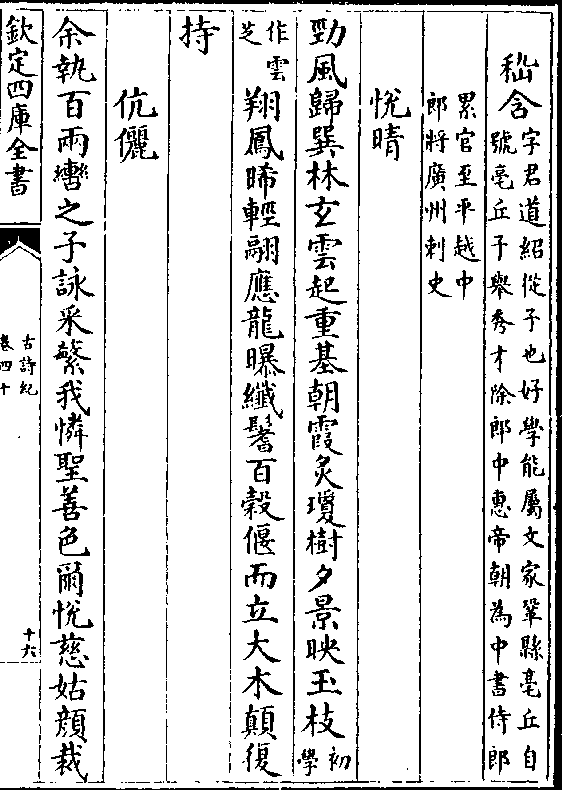 嵇含字君道紹從子也好學能屬文家鞏縣亳丘自
號亳丘子舉秀才除郎中惠帝朝為中書侍郎
累官至平越中
郎將廣州刺史
悅晴
勁風歸巽林玄雲起重基朝霞炙瓊樹夕景映玉枝初學
作雲芝翔鳳晞輕翮應龍曝纖鬐百穀偃而立大木顛復
持
伉儷
余執百兩轡之子詠采蘩我憐聖善色爾悅慈姑顔裁
欽定四庫全書
古詩紀
卷四十
十六